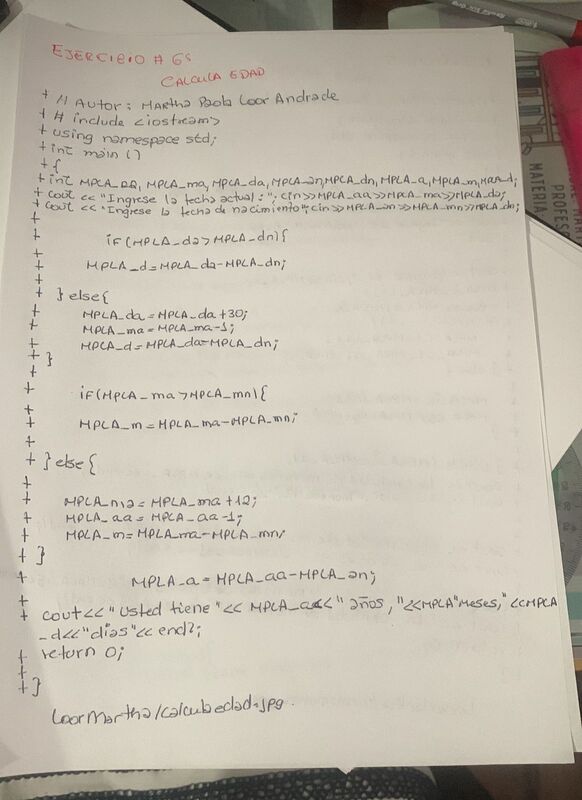 EJERCICIO # 6s
CALCULA EDAD
+ // Autor: Martha Paola Loor Andrade
+ # include <iostream>
+ using namespace std;
+ int main ()
+ {
+ int MPLA_aa, MPLA_ma, MPLA_da, MPLA_an, MPLA_dn, MPLA_a, MPLA_m, MPLA_d;
+ cout << "Ingrese la fecha actual: "; cin>>MPLA_aa>>MPLA_ma>>MPLA_da;
+ cout << "Ingrese la fecha de nacimiento"; cin>>MPLA_an>>MPLA_mn>>MPLA_dn;
+
+ if (MPLA_da>MPLA_dn){
+
+ MPLA_d=MPLA_da-MPLA_dn;
+
+ } else{
+ MPLA_da=MPLA_da+30;
+ MPLA_ma=MPLA_ma-1;
+ MPLA_d=MPLA_da-MPLA_dn;
+ }
+
+ if(MPLA_ma>MPLA_mn){
+
+ MPLA_m=MPLA_ma-MPLA_mn;
+
+ } else{
+
+ MPLA_ma=MPLA_ma+12;
+ MPLA_aa=MPLA_aa-1;
+ MPLA_m=MPLA_ma-MPLA_mn;
+ }
+ MPLA_a=MPLA_aa-MPLA_an;
+
+ cout<<"Usted tiene"<< MPLA_a<<" años,"<<MPLA"meses,"<<MPLA
_d<<"dias"<< endl;
+ return 0;
+
+ }
LoorMartha/calculaedad.jpg.
MATERIA
PROFES